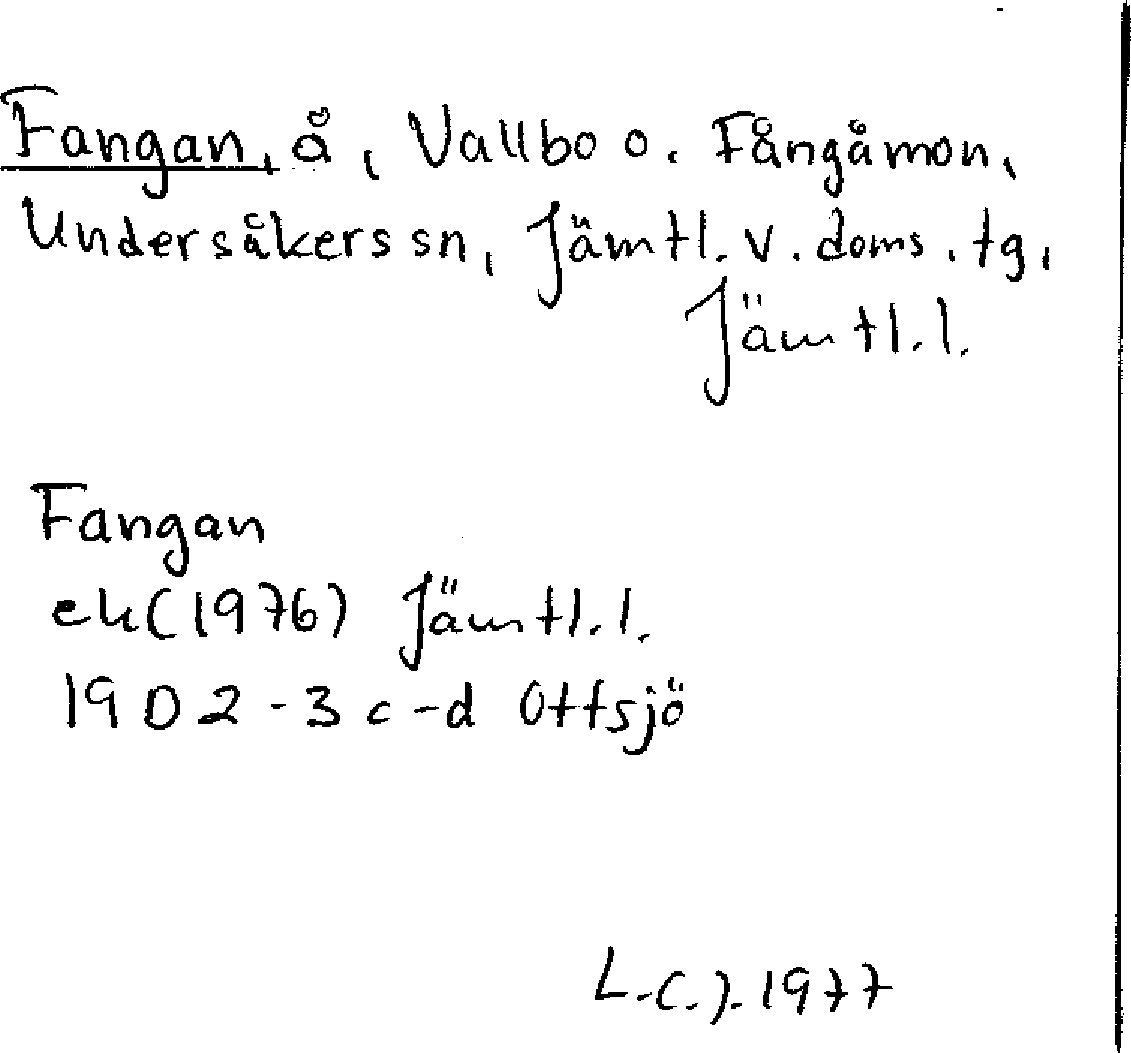 Fangan, å, Vallbo o. Fångåmon,
Undersåkers sn, Jämtl. v. doms. tg,
Jämtl. l.
Fangan
ek (1976) Jämtl. l.
19 D 2 - 3 c - d Ottsjö
L.C.J. 1977